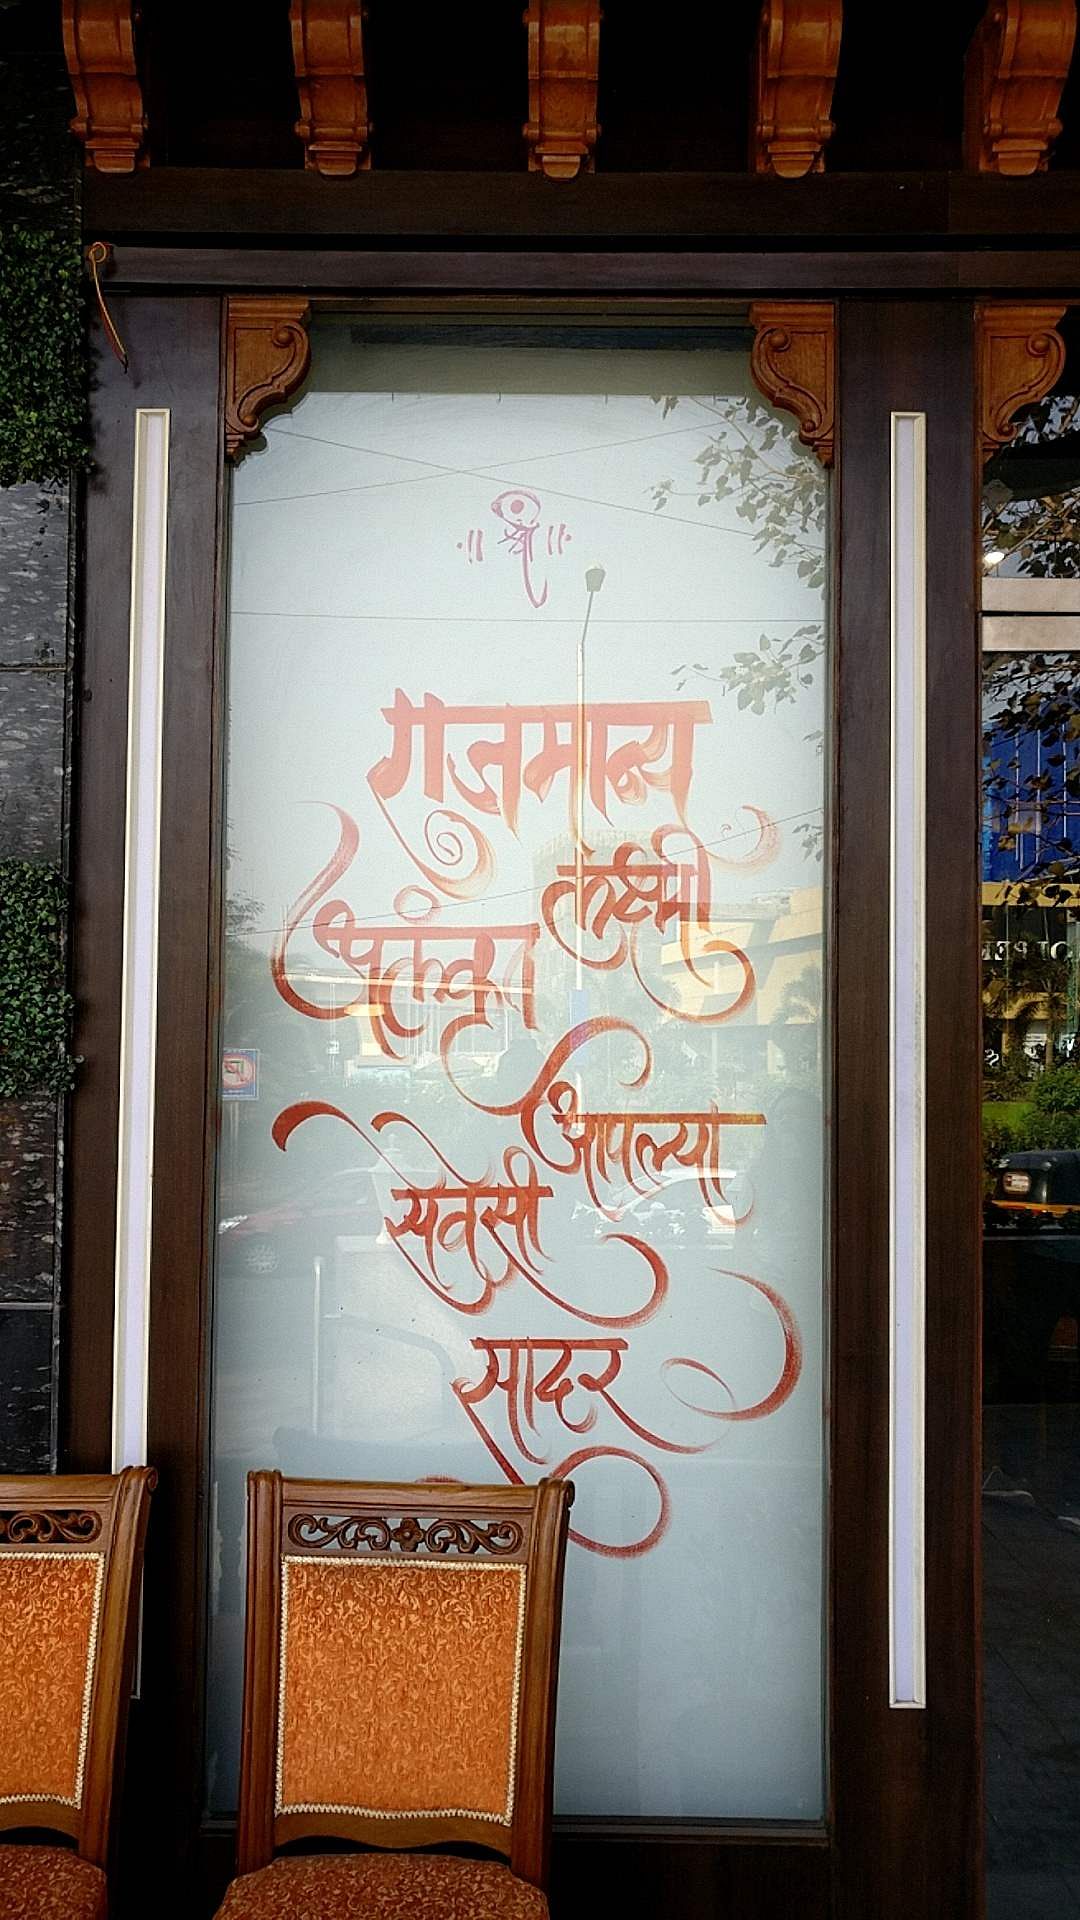 ॥ श्री ॥
राजमान्य
लक्ष्मी
अलंकृत
आपल्या
सेवेसी
सादर